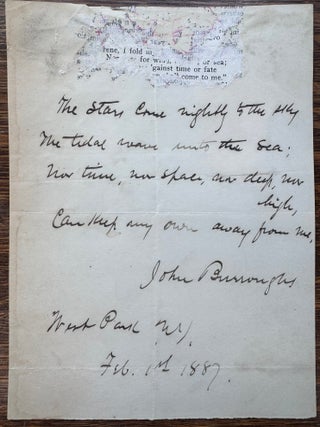 rene, I fold
or sea;
gainst time or fate
come to me."
The stars come nightly to the sky
The tidal wave unto the sea;
Nor time, nor space, nor deep, nor
high,
Can keep my own away from me,
John Burroughs
West Park N.Y.
Feb. 1st 1887.